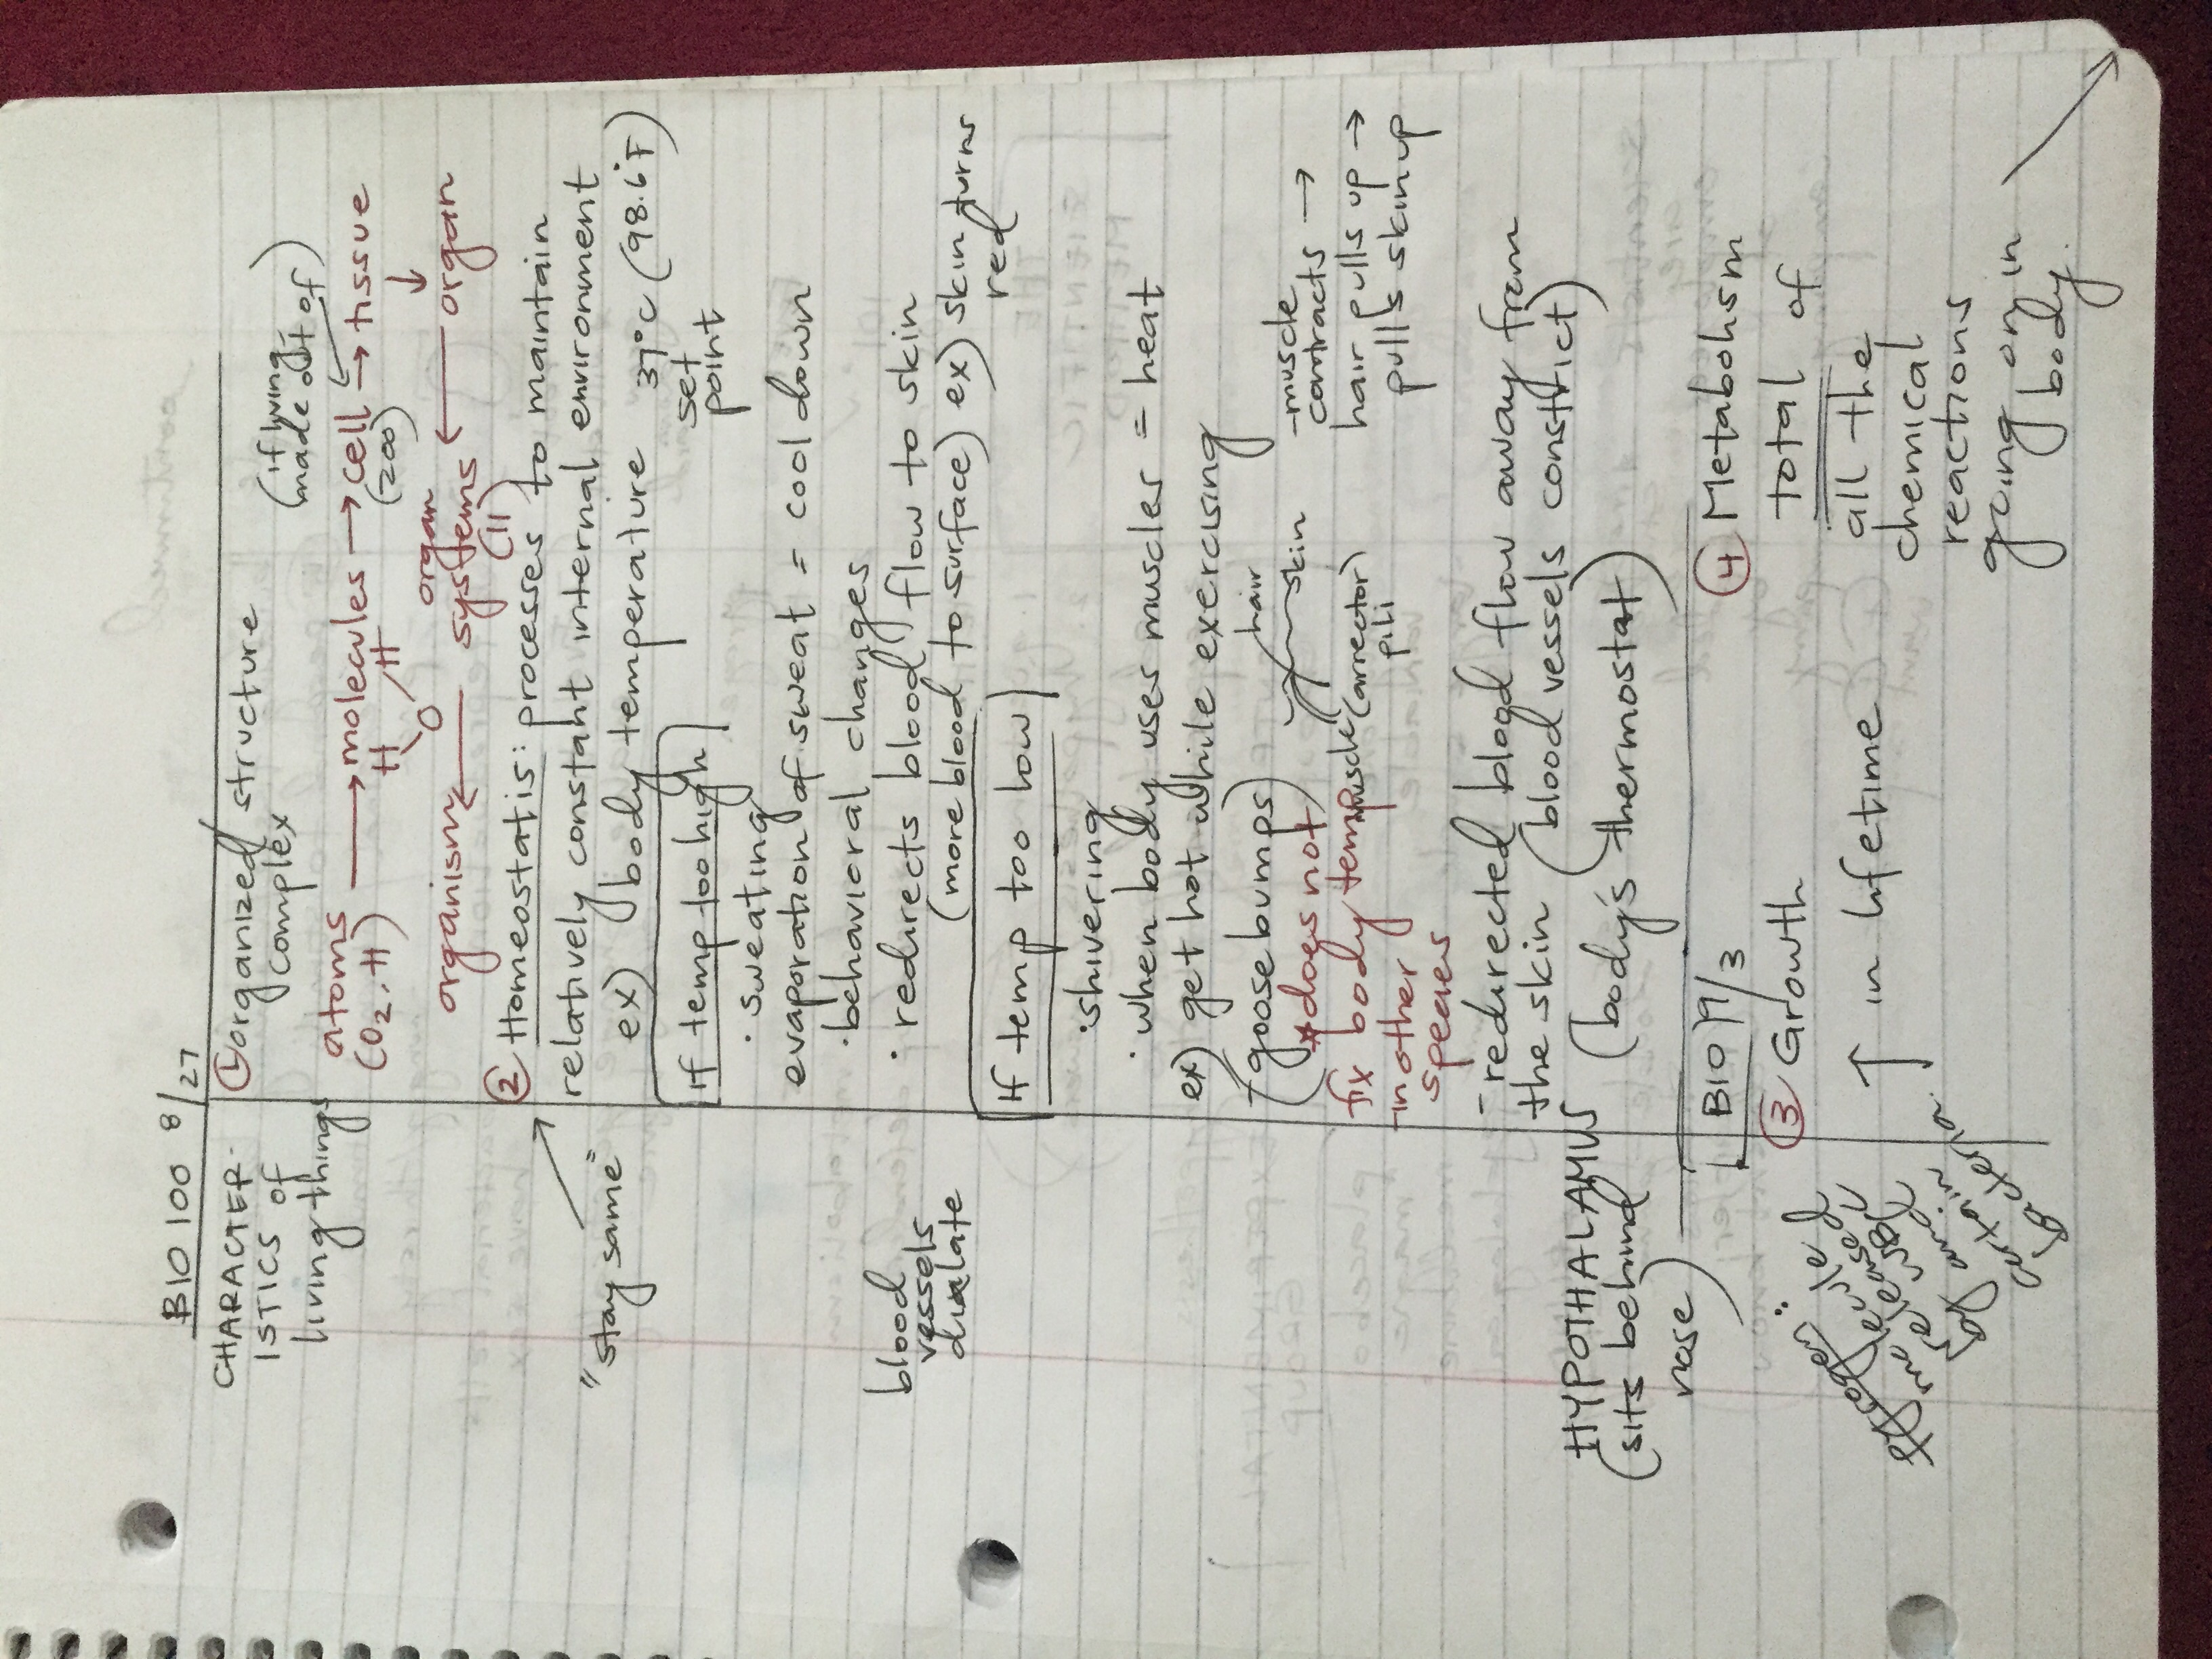 BIO 100 8/27
CHARACTER-
ISTICS OF
living things
① organized structure
complex
(if living,
made out of)
atoms → molecules → cell → tissue
(O2, H)
(200)
H O H
↓
organism ← organ systems ← organ
(11)
"stay same"
② Homeostatis: processes to maintain
relatively constant internal environment
ex) body temperature 37°C (98.6°F)
set
point
If temp too high
· sweating
evaporation of sweat = cool down
· behavioral changes
· redirects blood flow to skin
(more blood to surface) ex) skin turns
red
blood
vessels
dialate
If temp too low
· shivering
· when body uses muscles = heat
ex) get hot while exercising
(goosebumps)
hair
skin
muscle (arrector
pili)
- muscle
contracts →
hair pulls up →
pulls skin up
* does not
fix body temp
in other
species
- redirected blood flow away from
the skin (blood vessels constrict)
HYPOTHALAMUS (body's thermostat)
(sits behind
nose)
BIO 9/3
③ Growth
↑ in lifetime
④ Metabolism
total of
all the
chemical
reactions
going on in
body.